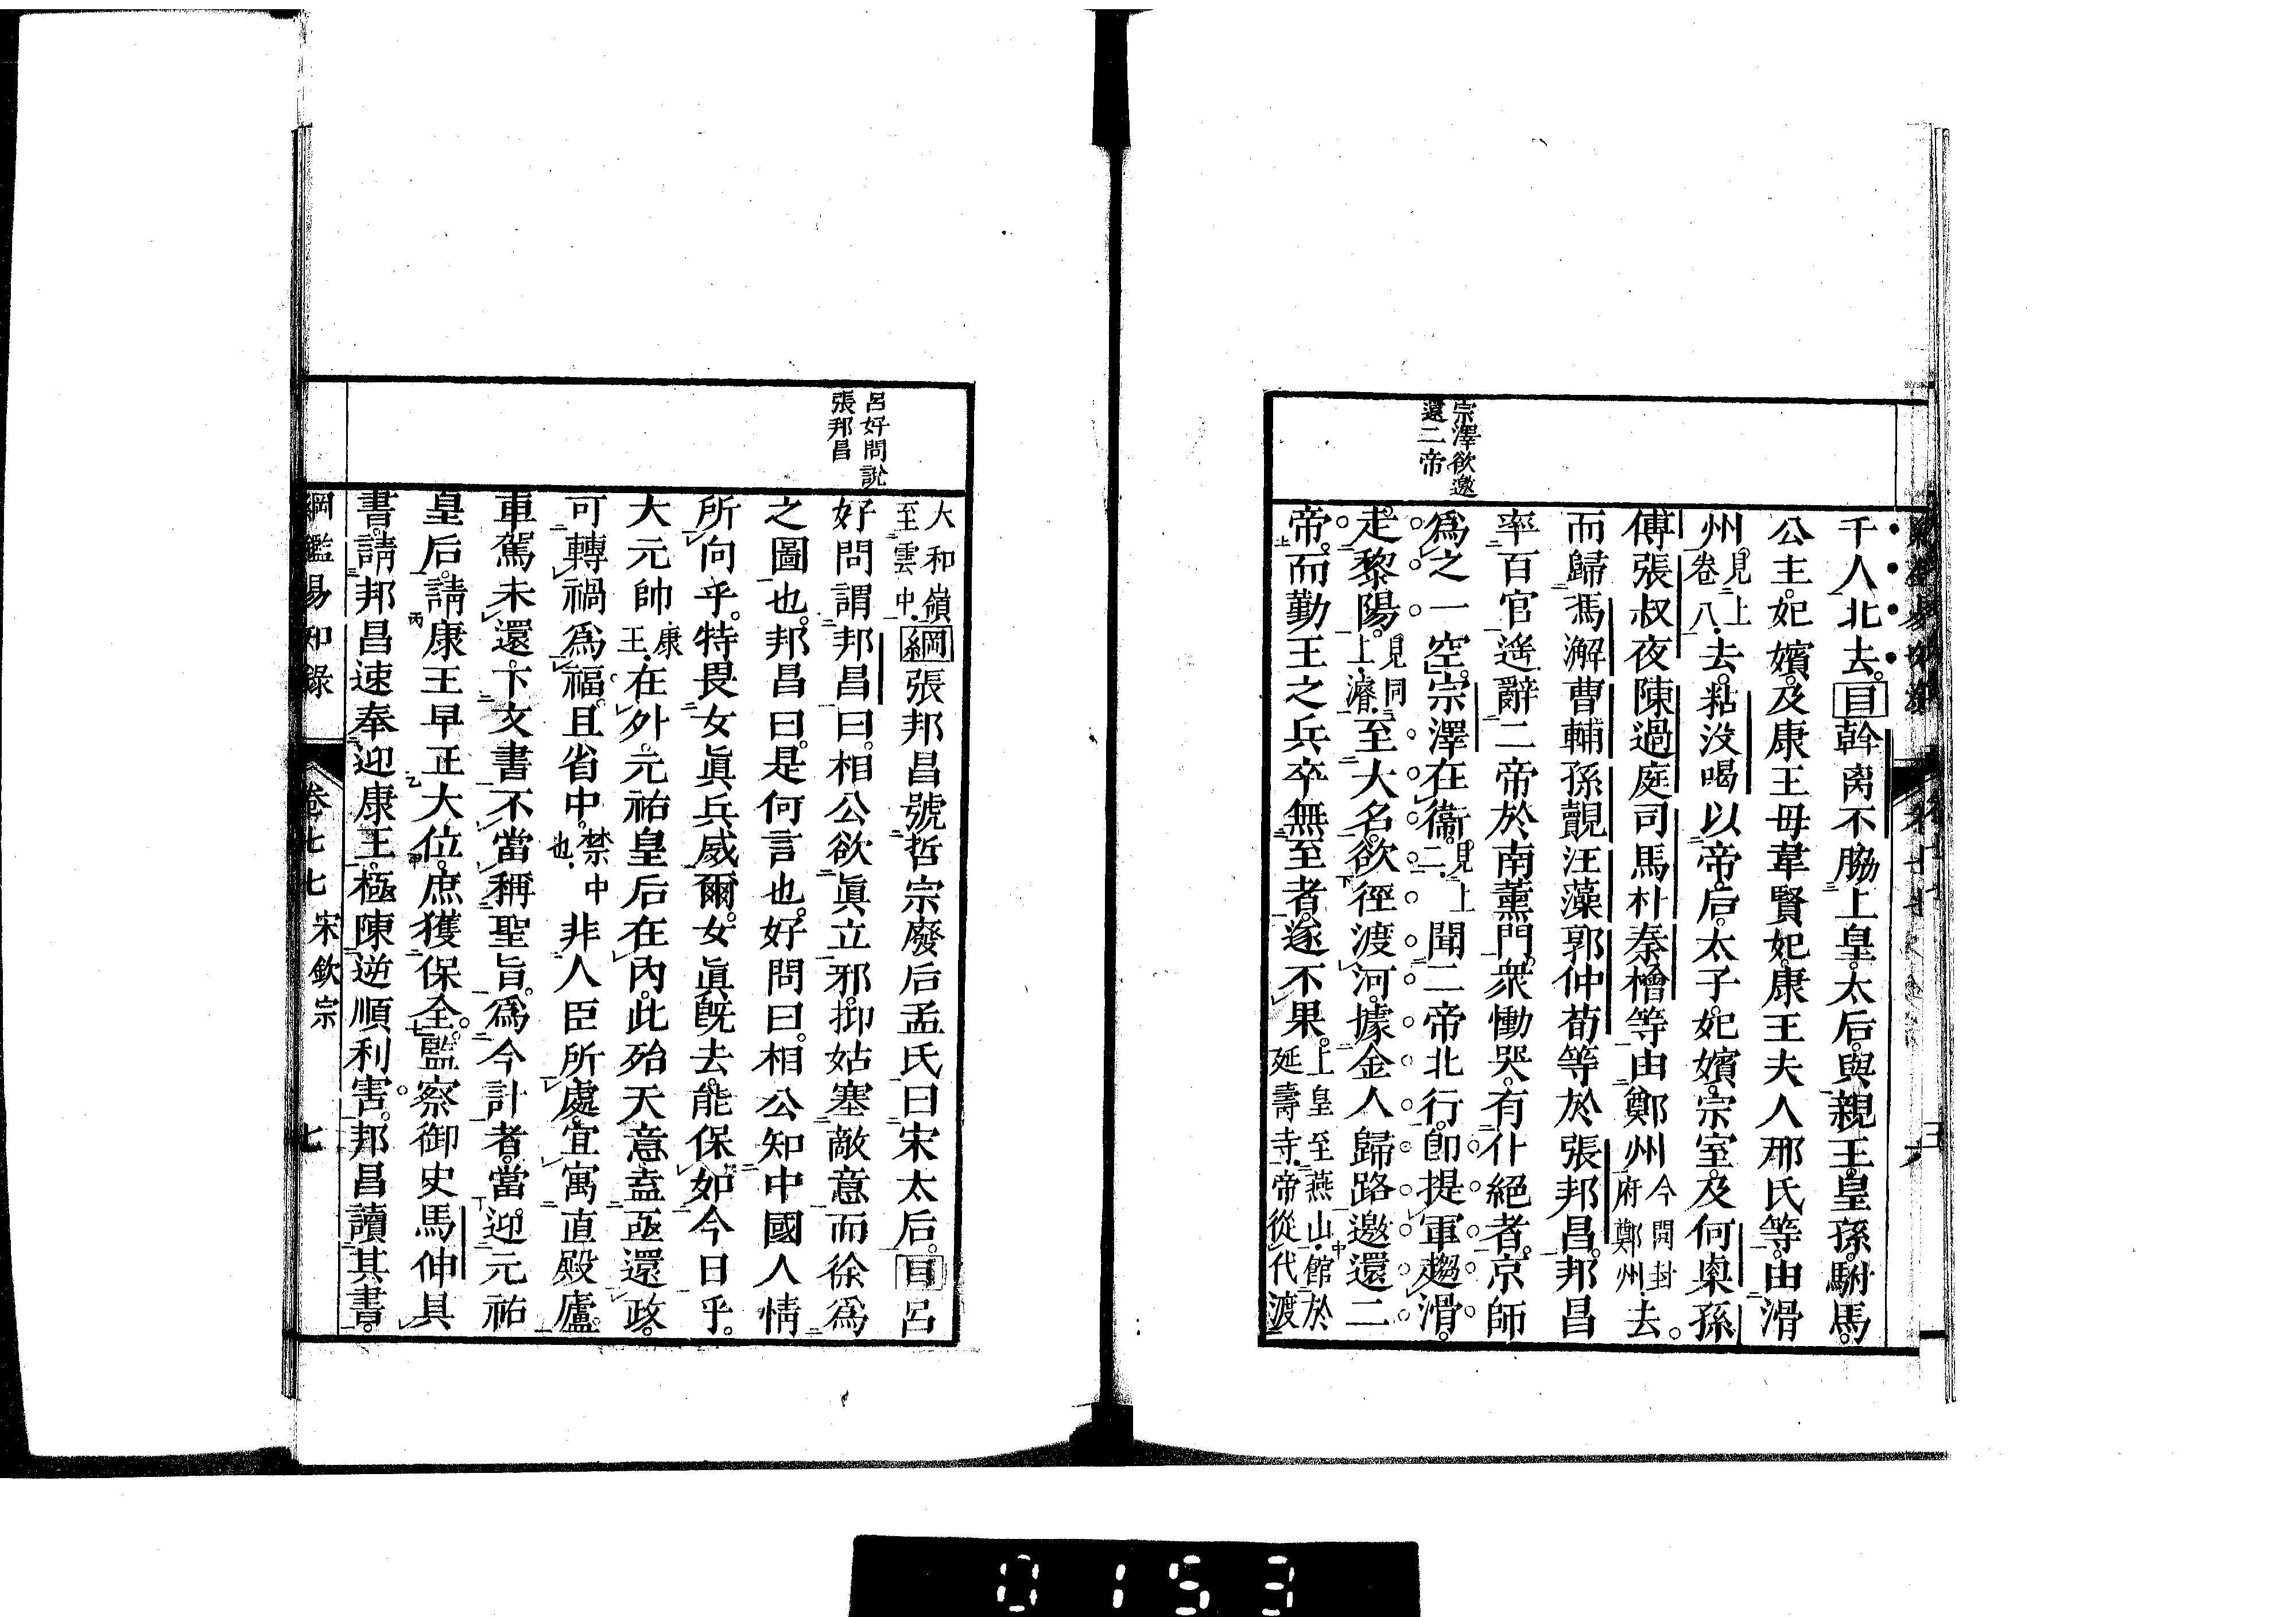 宗澤欲邀
還二帝
千人北去。目斡离不脇上皇。太后。與親王。皇孫。駙馬。
公主。妃嬪。及康王母韋賢妃。康王夫人邢氏等。由滑
州見上卷八去。粘没喝以帝。后。太子。妃嬪。宗室。及何㮚孫
傅張叔夜陳過庭司馬朴秦檜等由鄭州今開封府鄭州去。
而歸馮澥曹輔孫覿汪藻郭仲荀等於張邦昌。邦昌
率百官遙辭二帝於南薰門。衆慟哭。有仆絕者。京師
爲之一空。宗澤在衞見上二聞二帝北行。卽提軍趨滑。
走黎陽。見同上濬至大名。欲徑渡河。據金人歸路邀還二
帝。而勤王之兵卒無至者。遂不果。上皇至燕山館於延壽寺帝從代渡
呂好問説
張邦昌
大和嶺至雲中綱張邦昌號哲宗廢后孟氏曰宋太后。目呂
好問謂邦昌曰。相公欲眞立邪。抑姑塞敵意而徐爲
之圖也。邦昌曰。是何言也。好問曰。相公知中國人情
所向乎。特畏女眞兵威爾。女眞旣去。能保如今日乎。
大元帥康王在外。元祐皇后在內。此殆天意。盍亟還政。
可轉禍爲福。且省中。禁中也非人臣所處。宜寓直殿廬。
車駕未還。下文書不當稱聖旨。爲今計者。當迎元祐
皇后。請康王早正大位。庶獲保全。監察御史馬伸具
書。請邦昌速奉迎康王。極陳逆順利害。邦昌讀其書。
綱鑑易知錄 卷七七 宋欽宗 七
0153